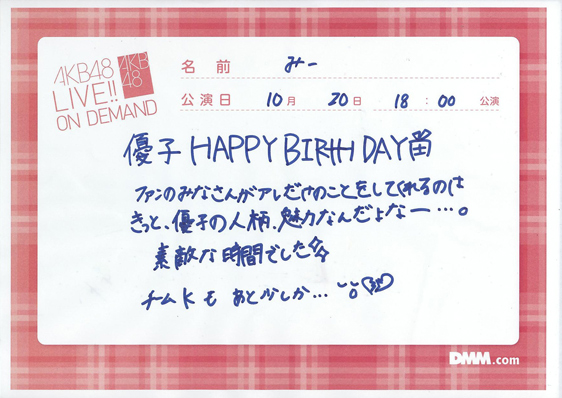 AKB48
LIVE!!
ON DEMAND
AKB
48
名 前 みー
公演日 10月 20日 18:00 公演
優子 HAPPY BIRTHDAY
ファンのみなさんがアレだけのことをしてくれるのは
きっと、優子の人柄、魅力なんだよなー…。
素敵な時間でした
チームKも あと少しか…
DMM.com